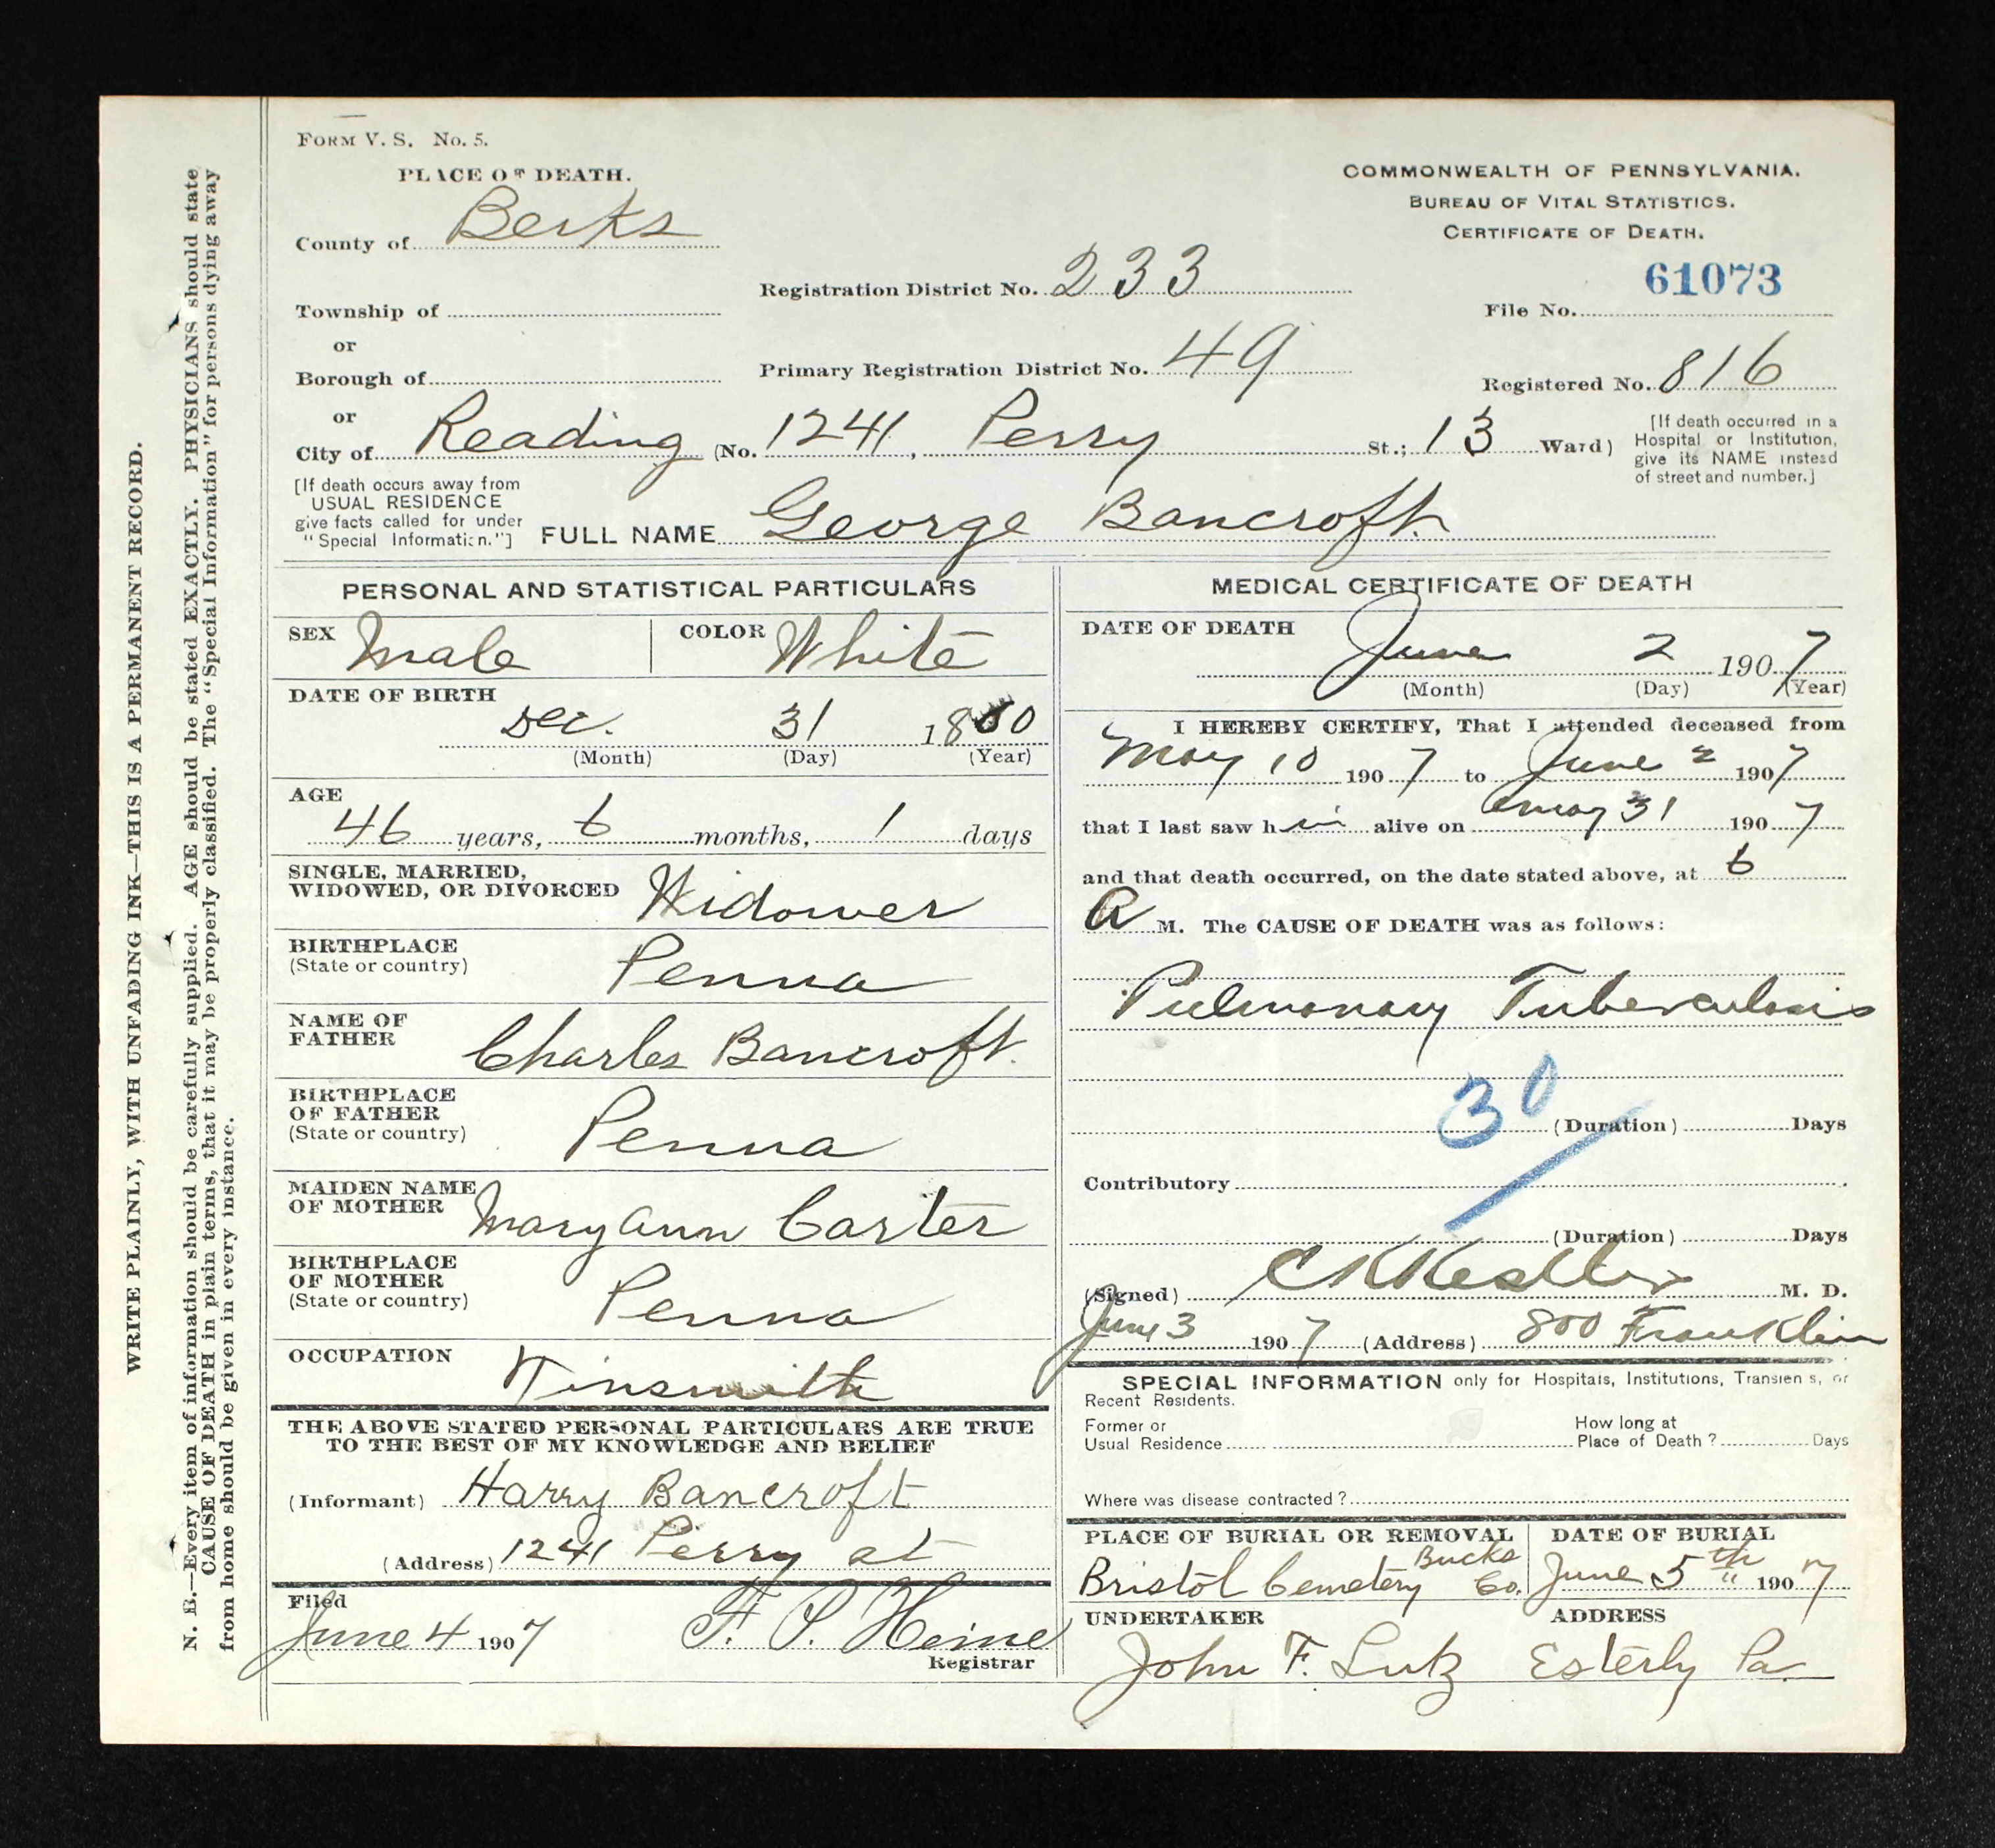 FORM V. S. No. 5.
PLACE OF DEATH.
County of Berks
Township of
or
Borough of
or
City of Reading (No. 1241, Perry St.; 13 Ward)
COMMONWEALTH OF PENNSYLVANIA.
BUREAU OF VITAL STATISTICS.
CERTIFICATE OF DEATH.
Registration District No. 233
61073
File No.
Primary Registration District No. 49
Registered No. 816
[If death occurred in a
Hospital or Institution,
give its NAME instead
of street and number.]
[If death occurs away from
USUAL RESIDENCE
give facts called for under
"Special Information."]
FULL NAME George Bancroft.
PERSONAL AND STATISTICAL PARTICULARS
SEX Male COLOR White
DATE OF BIRTH
Dec. 31 1860
(Month) (Day) (Year)
AGE
46 years, 6 months, 1 days
SINGLE, MARRIED,
WIDOWED, OR DIVORCED Widower
BIRTHPLACE
(State or country) Penna
NAME OF
FATHER Charles Bancroft.
BIRTHPLACE
OF FATHER
(State or country) Penna
MAIDEN NAME
OF MOTHER Mary Ann Carter
BIRTHPLACE
OF MOTHER
(State or country) Penna
OCCUPATION Tinsmith
THE ABOVE STATED PERSONAL PARTICULARS ARE TRUE
TO THE BEST OF MY KNOWLEDGE AND BELIEF
(Informant) Harry Bancroft
(Address) 1241 Perry st
Filed
June 4 1907 F. P. Heine
Registrar
MEDICAL CERTIFICATE OF DEATH
DATE OF DEATH
June 2 1907
(Month) (Day) (Year)
I HEREBY CERTIFY, That I attended deceased from
May 10 1907 to June 2 1907
that I last saw him alive on May 31 1907
and that death occurred, on the date stated above, at 6
A M. The CAUSE OF DEATH was as follows:
Pulmonary Tuberculosis
30
(Duration) Days
Contributory
(Duration) Days
(Signed) C K M. D.
June 3 1907 (Address) 800 Franklin
SPECIAL INFORMATION only for Hospitals, Institutions, Transients, or
Recent Residents.
Former or
Usual Residence
How long at
Place of Death? Days
Where was disease contracted?
PLACE OF BURIAL OR REMOVAL
Bristol Cemetery Bucks Co.
DATE OF BURIAL
June 5th 1907
UNDERTAKER
John F. Lutz
ADDRESS
Esterly Pa
WRITE PLAINLY, WITH UNFADING INK—THIS IS A PERMANENT RECORD.
N. B.—Every item of information should be carefully supplied. AGE should be stated EXACTLY. PHYSICIANS should state
CAUSE OF DEATH in plain terms, that it may be properly classified. The "Special Information" for persons dying away
from home should be given in every instance.